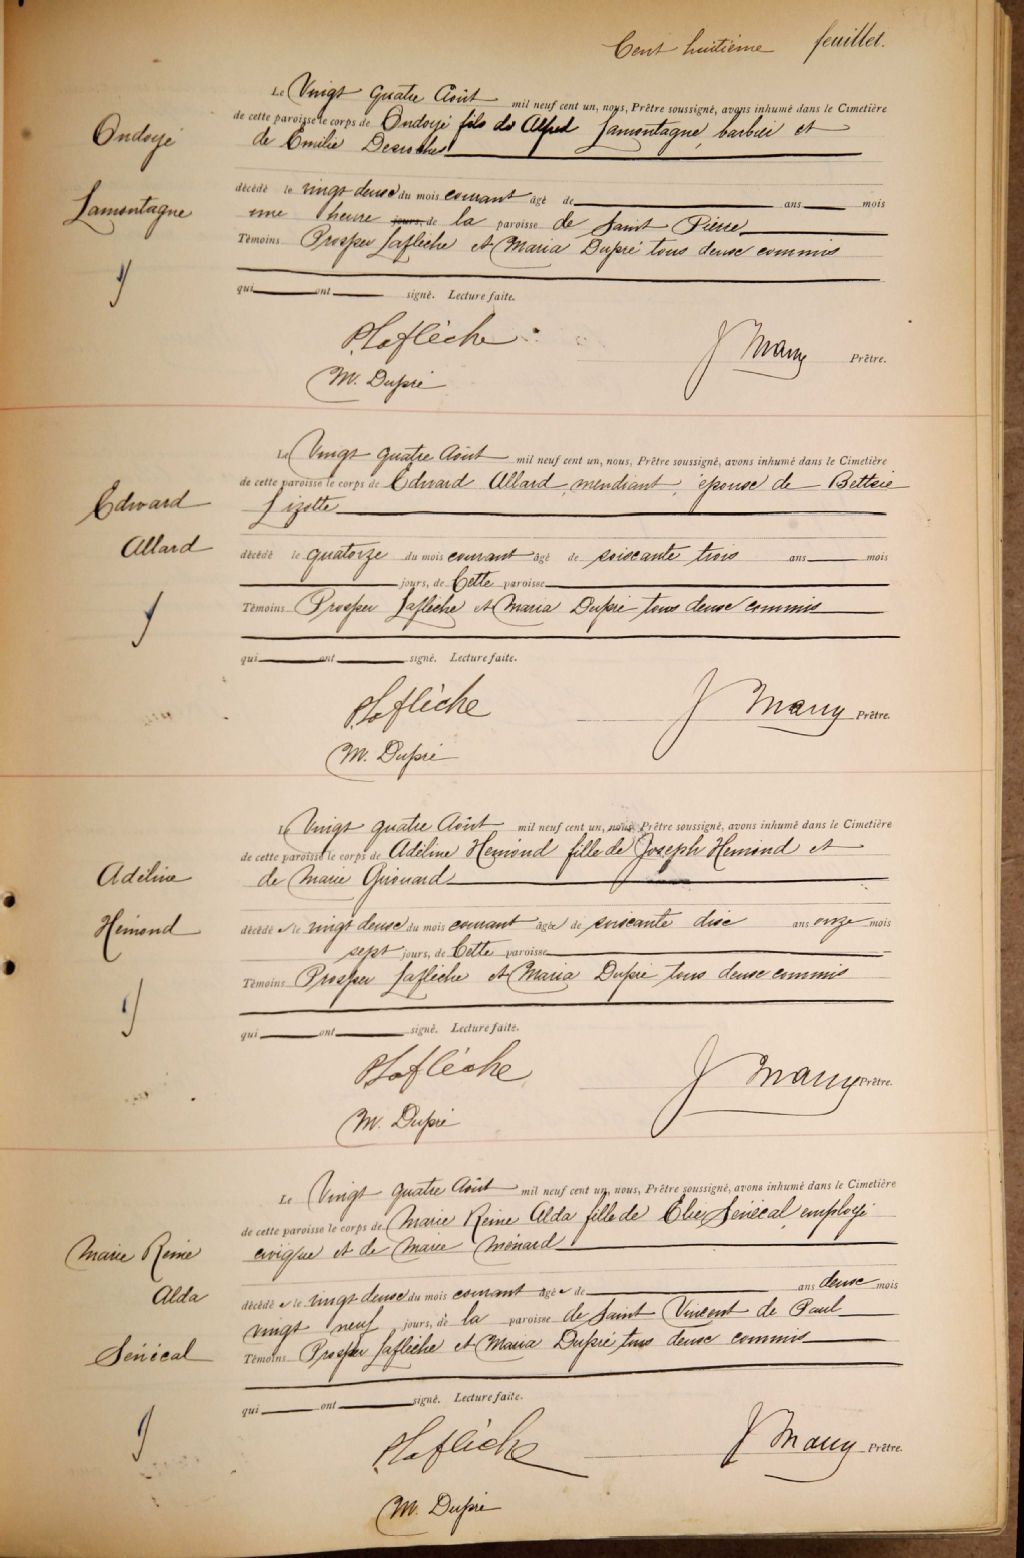 Cent huitième feuillet.
Le Vingt quatre Août mil neuf cent un, nous, Prêtre soussigné, avons inhumé dans le Cimetière
de cette paroisse le corps de Ondoyé fils de Alfred Lamontagne, barbier et
de Émilie Desroches
Ondoyé
Lamontagne
décédé le vingt deux du mois courant âgé de ans mois
une heure jours, de la paroisse de Saint Pierre
Témoins Prosper Laflèche et Maria Dupré tous deux commis
qui ont signé. Lecture faite.
P. Laflèche
J Prêtre.
M. Dupré
Le Vingt quatre Août mil neuf cent un, nous, Prêtre soussigné, avons inhumé dans le Cimetière
de cette paroisse le corps de Edward Allard, mendiant, épouse de Bettsie
Lizotte
Edward
Allard
décédé le quatorze du mois courant âgé de soixante trois ans mois
jours, de Cette paroisse
Témoins Prosper Laflèche et Maria Dupré tous deux commis
qui ont signé. Lecture faite.
P. Laflèche
J Prêtre.
M. Dupré
Le Vingt quatre Août mil neuf cent un, nous, Prêtre soussigné, avons inhumé dans le Cimetière
de cette paroisse le corps de Adéline Hemond fille de Joseph Hemond et
de Marie Girouard
Adéline
Hémond
décédée le vingt deux du mois courant âgée de soixante dix ans onze mois
sept jours, de Cette paroisse
Témoins Prosper Laflèche et Maria Dupré tous deux commis
qui ont signé. Lecture faite.
P. Laflèche
J Prêtre.
M. Dupré
Le Vingt quatre Août mil neuf cent un, nous, Prêtre soussigné, avons inhumé dans le Cimetière
de cette paroisse le corps de Marie Reine Alda fille de Elie Sénécal, employé
civique et de Marie Ménard
Marie Reine
Alda
Sénécal
décédée le vingt deux du mois courant âgée de ans deux mois
vingt neuf jours, de la paroisse de Saint Vincent de Paul
Témoins Prosper Laflèche et Maria Dupré tous deux commis
qui ont signé. Lecture faite.
P. Laflèche
J Prêtre.
M. Dupré